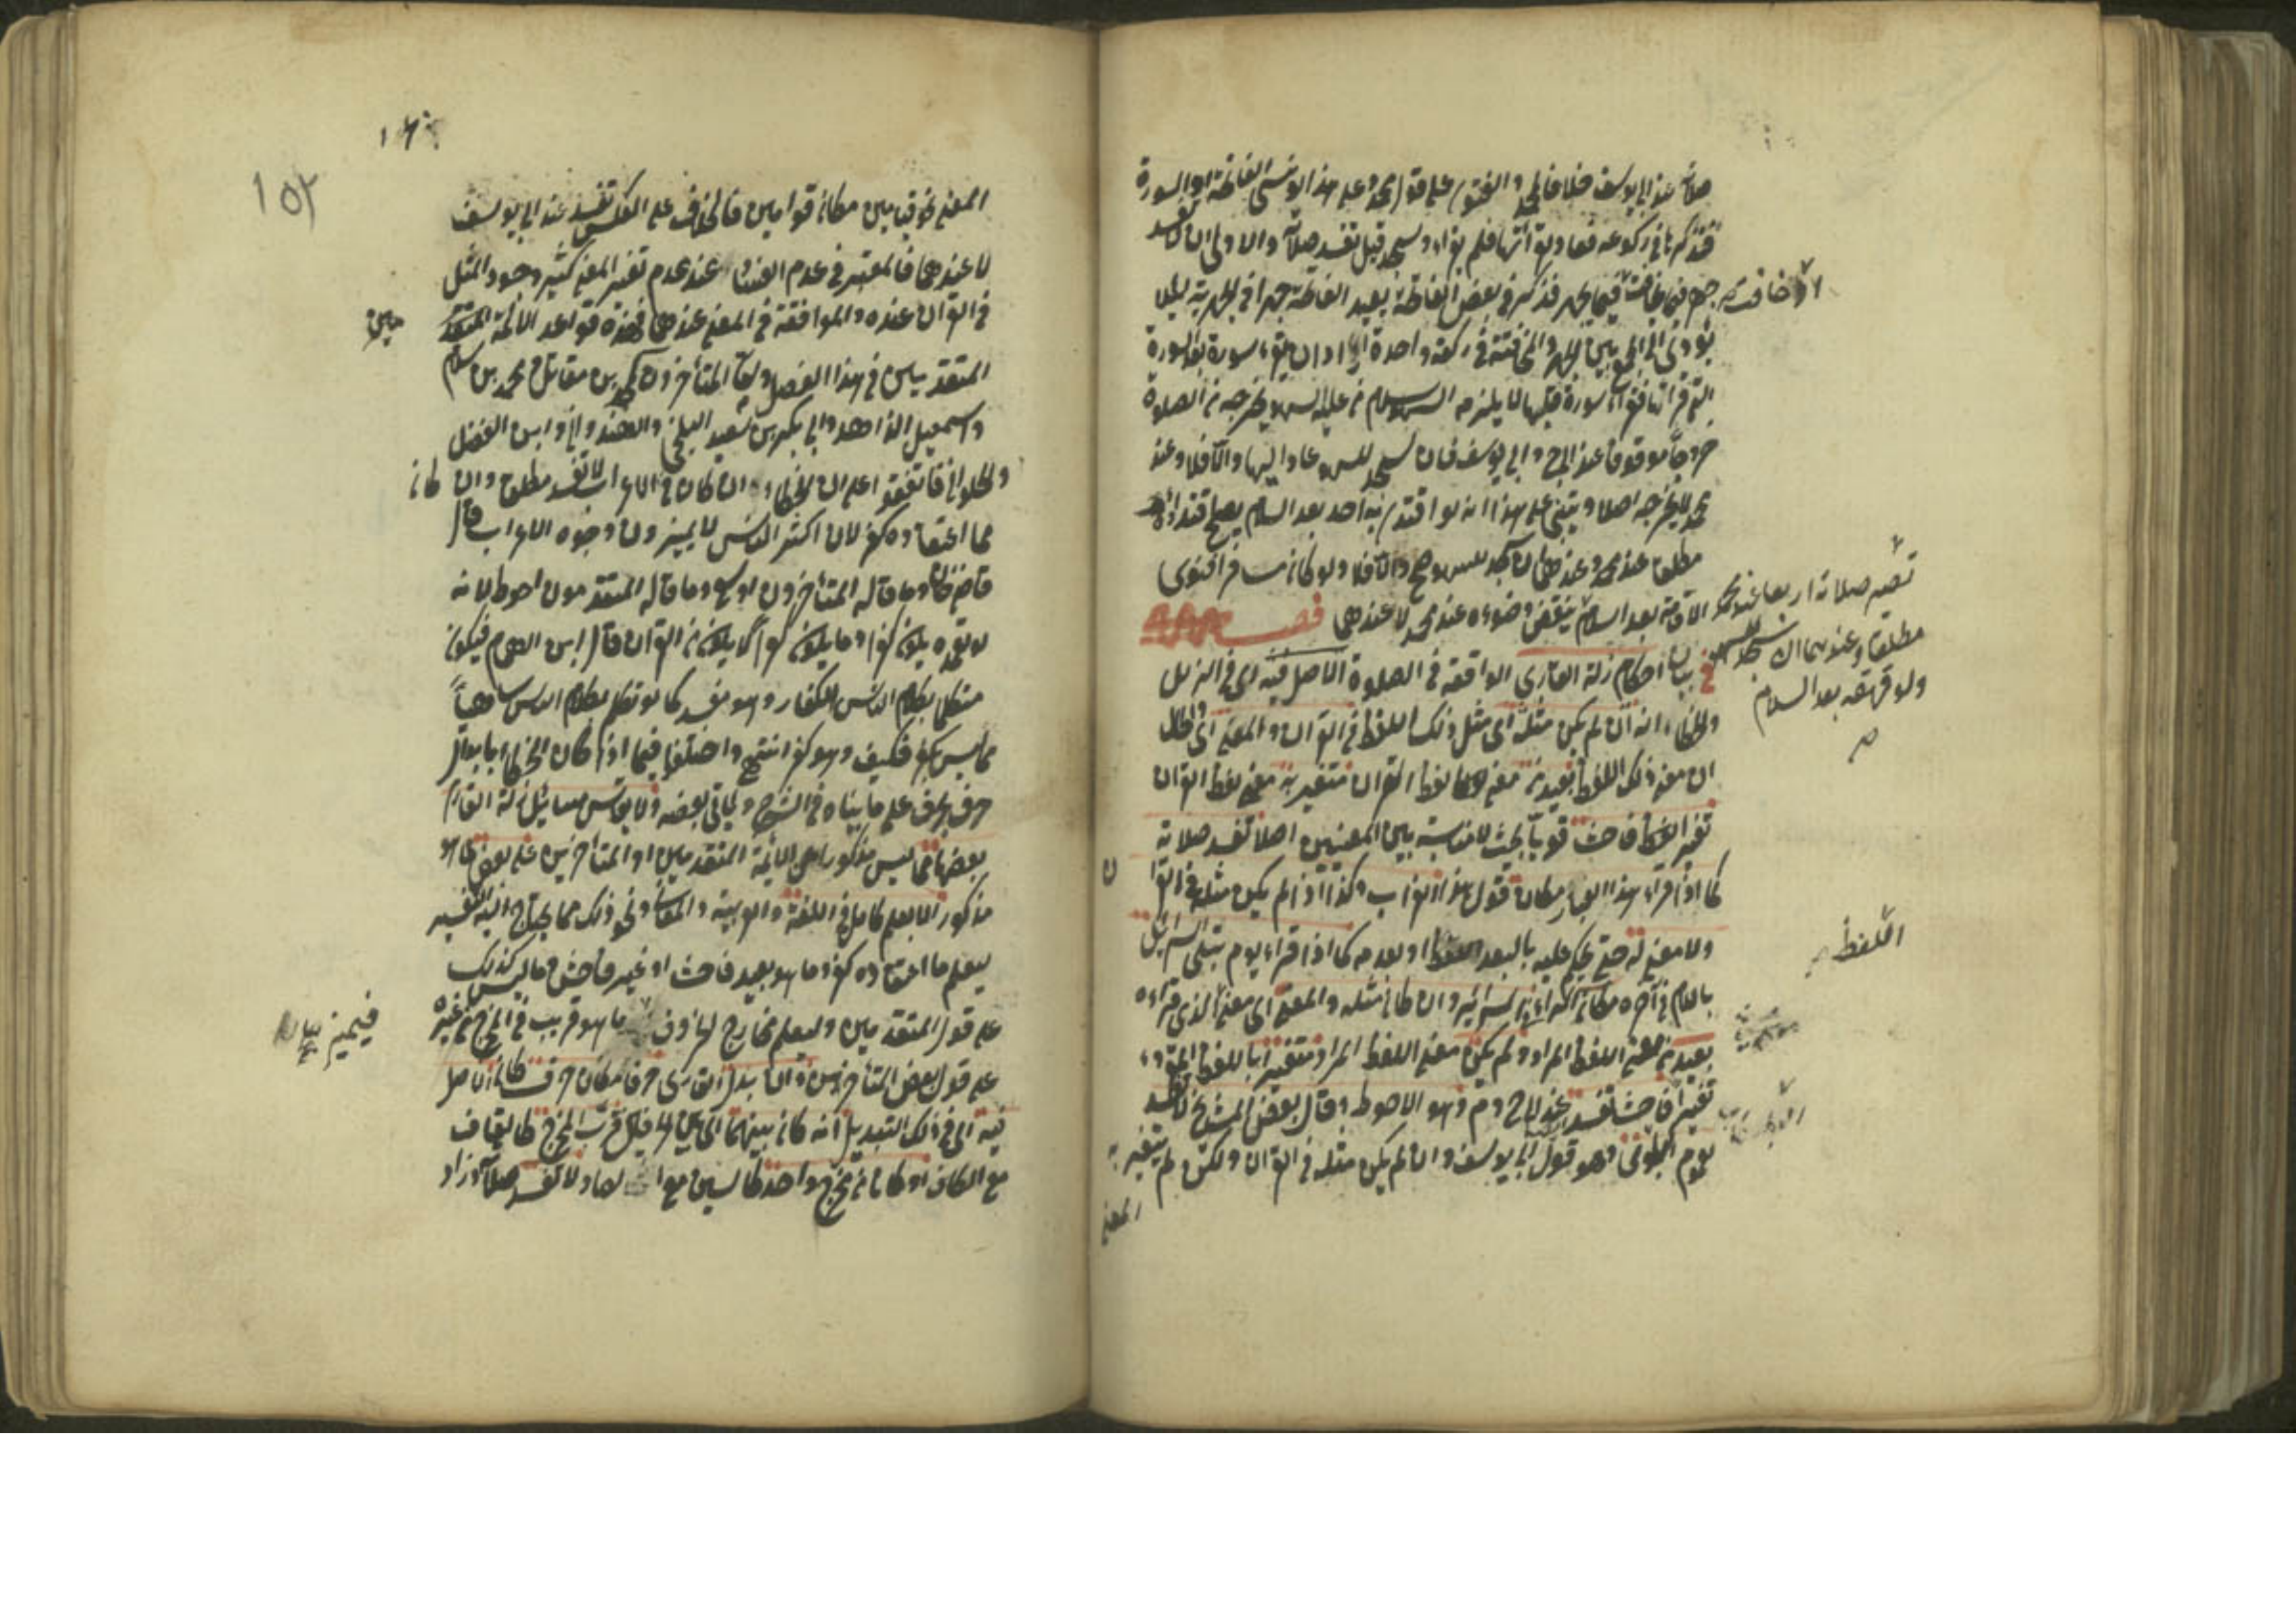 صلاته عند ابى يوسف خلافا لمحمد والفتوى على قول محمد وعلى هذا لو نسى الفاتحة او السورة
فتذكرها في ركوعه فعاد ولم يقرأ وسجد قيل تفسد صلاته والاولى ان لا تفسد
جهر فيما يخافت فيما يجهر فذكر في بعض الفاتحة يعيد الفاتحة جهرا في الجهرية لئلا
يؤدى الى الجمع بين الجهر والمخافتة في ركعة واحدة اراد ان يقرء سورة بعد السورة
التى قرأها فقراء سورة قبلها لا يلزمه السهو سلام من عليه السهو يخرجه من الصلوة
خروجا موقوفا عند ابى ح وابى يوسف فان سجد للسهو عاد اليها والا فلا وعند
محمد لا يخرجه اصلا ويبتنى على هذا انه لو اقتدى به احد بعد السلام يصح اقتداؤه
مطلقا عند محمد وعندهما ان سجد للسهو صح والا فلا ولو كان مسافرا فنوى
الاقامة بعد السلام ينتقض وضوءه عند محمد لا عندهما فصل
في بيان احكام زلة القارى الواقعة في الصلوة الاصل فيه اى في الزلل
والخطاء انه ان لم يكن مثله اى مثل ذلك اللفظ في القرآن والمعنى اى والحال
ان معنى ذلك اللفظ بعيد من معنى لفظ القرآن متغير به معنى لفظ القرآن
تغيرا فاحشا قويا بحيث لا مناسبة بين المعنيين اصلا تفسد صلاته
كما اذا قراء هذا الغبار مكان قوله هذا الغراب وكذا اذا لم يكن مثله في القرآن
ولا معنى له حتى يحكم عليه بالبعد او بعدمه كما اذا قراء يوم تبلى السرائل
باللام في آخره مكان الراء في السرائر وان كان مثله والمعنى اى معنى الذى قراءه
بعيد من معنى اللفظ المراد ولم يكن معنى اللفظ المراد متغيرا باللفظ المقروء
تغيرا فاحشا تفسد عند ابى ح وم وهو الاحوط وقال بعض المشايخ لا تفسد
لعموم البلوى وهو قول ابى يوسف وان لم يكن مثله في القرآن ولكن لم يتغير به
المعنى
او خافت
تصير صلاته اربعا عند محمد
مطلقا وعندهما ان سجد للسهو
ولو قهقه بعد السلام
اللفظ
١٥٢
المعنى نحو قيامين مكان قوامين فالخلاف على العكس تفسد عند ابى يوسف
لا عندهما فالمعتبر في عدم الفساد عند عدم تغير المعنى كثيرا وجود المثل
في القرآن عنده والموافقة في المعنى عندهما فهذه قواعد الائمة المتقدمين
المتقدمين في هذا الفصل واما المتأخرون كمحمد بن مقاتل ومحمد بن سلام
واسمعيل الزاهد وابى بكر بن سعيد البلخى والهندوانى وابن الفضل
والحلوانى فاتفقوا على ان الخطاء ان كان في الاعراب لا تفسد مطلقا وان كان
مما اعتقاده كفر لان اكثر الناس لا يميزون وجوه الاعراب قال
قاضيخان وما قاله المتأخرون اوسع وما قاله المتقدمون احوط لانه
لو تعمده يكون كفرا وما يكون كفرا لا يكون من القرآن قال ابن الهمام فيكون
متكلما بكلام الناس الكفار وهو مفسد كما لو تكلم بكلام الناس ساهيا
مما ليس بكفر فكيف وهو كفر انتهى واختلفوا فيما اذا كان الخطاء بابدال
حرف بحرف على ما بيناه في الشرح وياتى بعضه ولا يقاس مسائل زلة القارى
بعضها مما ليس مذكورا عن الائمة المتقدمين او المتأخرين على بعض مما هو
مذكور الا بعلم كامل في اللغة والعربية والمعانى ونحو ذلك مما يحتاج اليه التفسير
ليعلم ما اعتقاده كفر وما هو بعيد فاحشا او غير فاحش وما ليس كذلك
على قول المتقدمين وليعلم مخارج الحروف ما هو قريب في المخرج من غيره
على قول بعض المتأخرين واما بدل القارى حرفا مكان حرف كان الاصل
فيه اى في ذلك التبديل انه كان بينهما اى بين الحرفين قرب المخرج كالقاف
مع الكاف او كانا من مخرج واحد كالسين مع الصاد لا تفسد صلاته وزاد